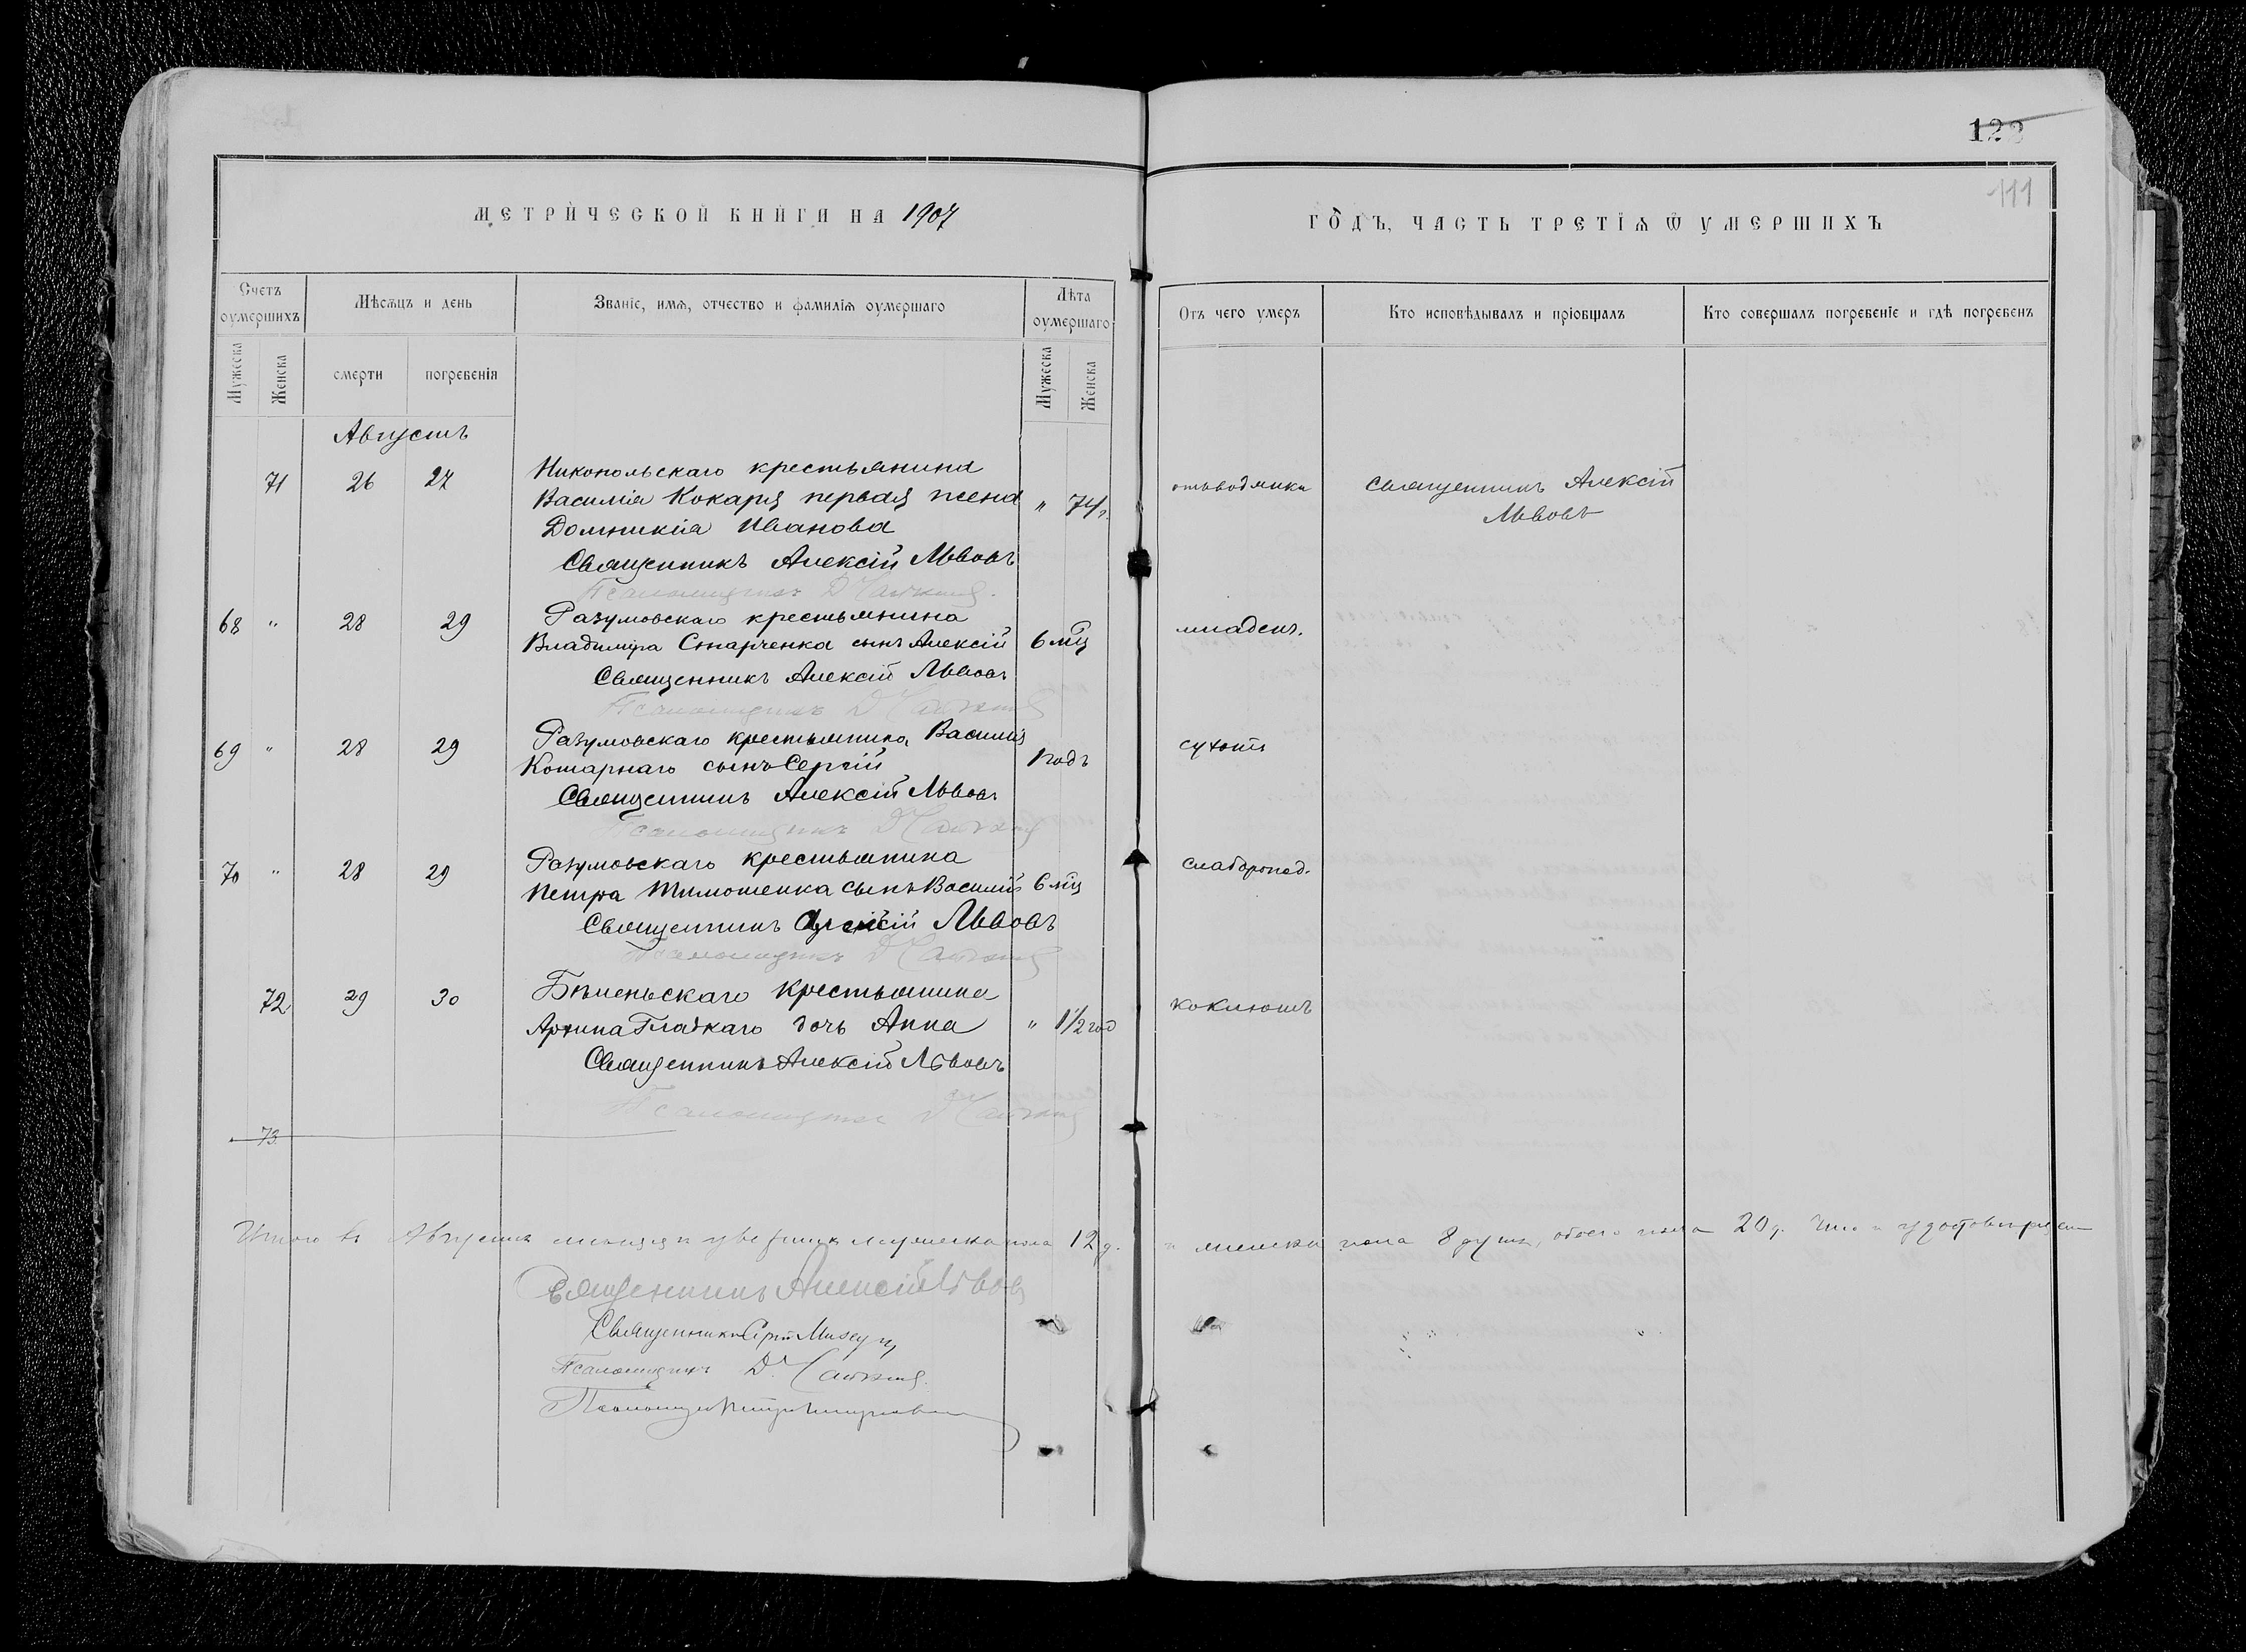 122
111
МЕТРИЧЕСКОЙ КНИГИ НА 1907
ГОДЪ, ЧАСТЬ ТРЕТІѦ Ѿ УМЕРШИХЪ
Счетъ оумершихъ
Мѣсѧцъ и день
Званіе, имѧ, отчество и фамиліѧ оумершаго
Лѣта оумершаго
Отъ чего умеръ
Кто исповѣдывалъ и пріобщалъ
Кто совершалъ погребеніе и гдѣ погребенъ
Мужеска
Женска
смерти
погребенія
Мужеска
Женска
Августъ
71 26 27 Никопольскаго крестьянина
Василія Кокаря первая жена " 74 г. отъ водянки Священникъ Алексій
Домникія Иванова Львовъ
Священникъ Алексій Львовъ
Псаломщикъ Д
68 " 28 29 Разумовскаго крестьянина
Владиміра Старченка сынъ Алексій 6 мц младенч.
Священникъ Алексій Львовъ
Псаломщикъ Д
69 " 28 29 Разумовскаго крестьянина Василія
Котарнаго сынъ Сергій 1 годъ сухоты
Священникъ Алексій Львовъ
Псаломщикъ Д
70 " 28 29 Разумовскаго крестьянина
Петра Тимошенка сынъ Василій 6 мц слаборожд.
Священникъ Алексій Львовъ
Псаломщикъ Д
72 29 30 Бѣленьскаго крестьянина
Архипа Гладкаго дочь Анна " 1 1/2 год коклюшъ
Священникъ Алексій Львовъ
Псаломщикъ Д
73
Итого въ Августѣ мѣсяцѣ умершихъ мужеска пола 12 д. и женска пола 8 душъ, обоего пола 20 д. Что и удостовѣряемъ
Священникъ Алексій Львовъ
Священникъ Сергій
Псаломщикъ Д.
Псаломщикъ Петръ